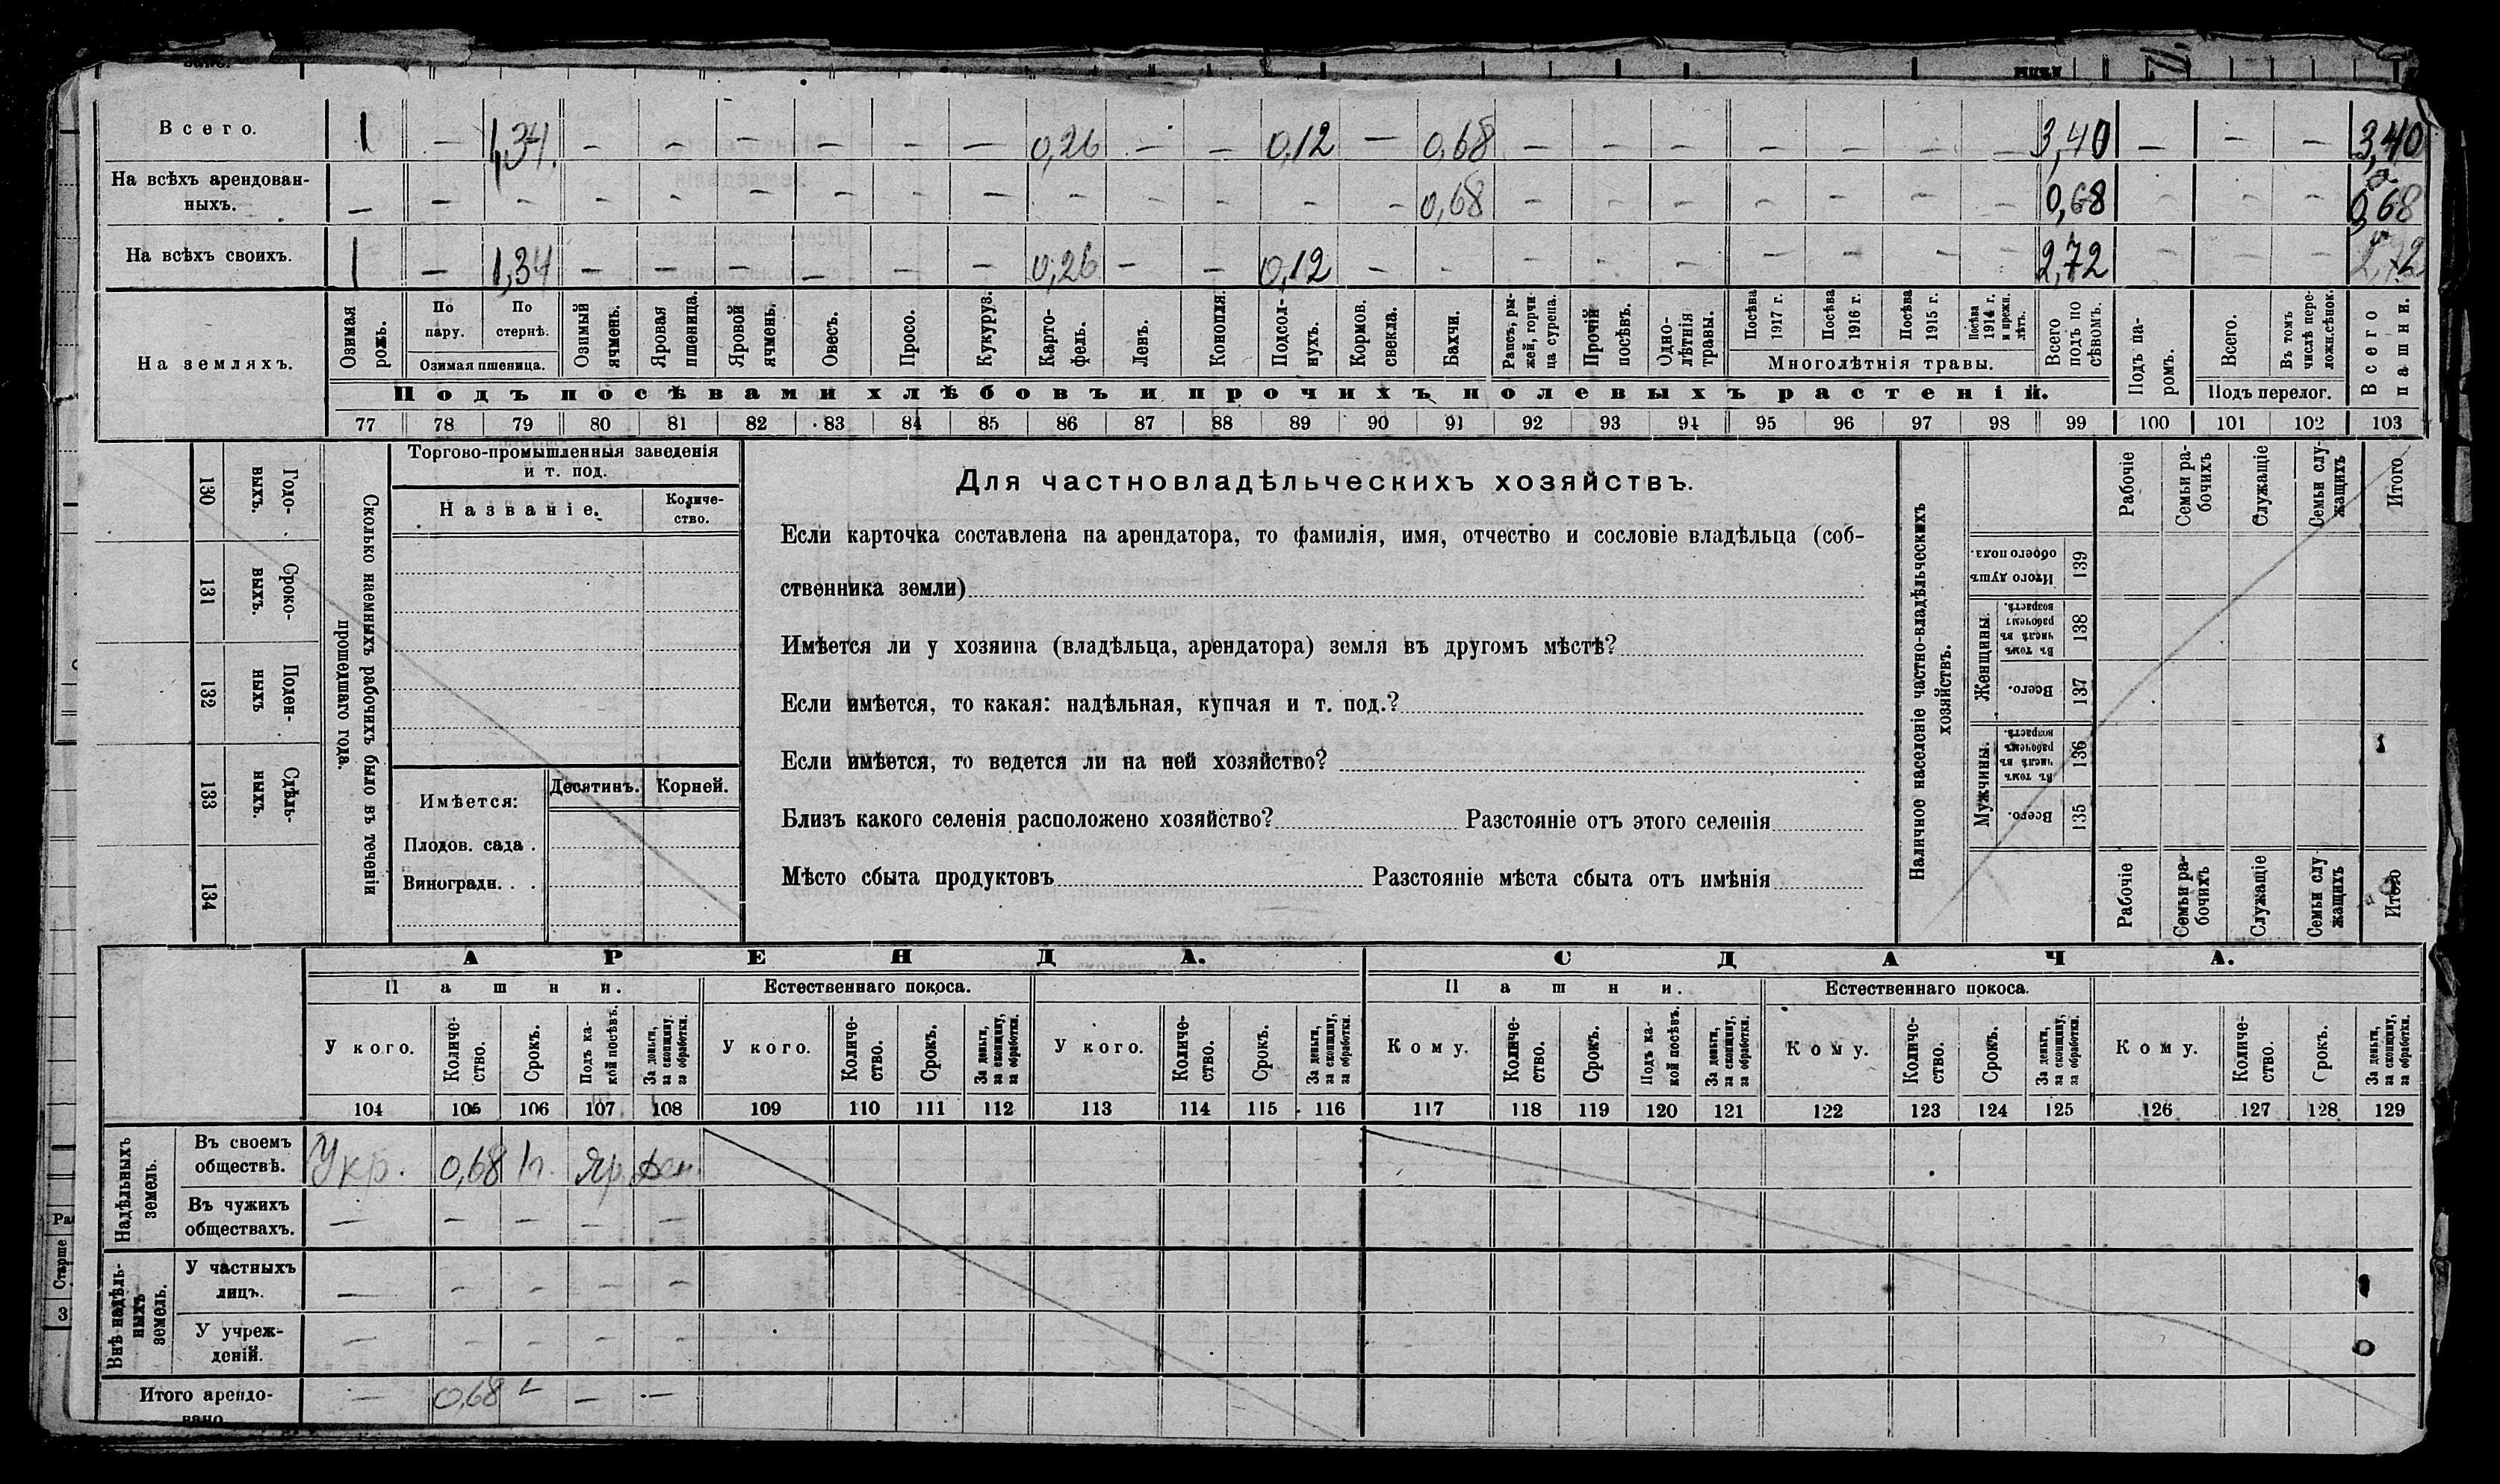 Всего. 1 — 1,34 — — — — — — 0,26 — — 0,12 — 0,68 — — — — — — — 3,40 — — — 3,40
На всѣхъ арендован-
ныхъ. — — — — — — — — — — — — — — 0,68 — — — — — — — 0,68 — — — 0,68
На всѣхъ своихъ. 1 — 1,34 — — — — — — 0,26 — — 0,12 — — — — — — — — — 2,72 — — — 2,72
На земляхъ.
Озимая рожь.
По пару.
По стернѣ.
Озимая пшеница.
Озимый ячмень.
Яровая пшеница.
Яровой ячмень.
Овесъ.
Просо.
Кукуруз.
Карто-
фель.
Ленъ.
Конопля.
Подсол-
нухъ.
Кормов. свекла.
Бахчи.
Рапсъ, ры-
жей, горчи
ца сурепа.
Прочій посѣвъ.
Одно-
лѣтнія травы.
Посѣва 1917 г.
Посѣва 1916 г.
Посѣва 1915 г.
Посѣва 1914 г. и прежн. лѣтъ.
Многолѣтнія травы.
Всего подъ по
сѣвомъ.
Подъ па-
ромъ.
Всего.
Въ томъ числѣ пере-
ложн.сѣнок.
Подъ перелог.
Всего пашни.
Подъ посѣвами хлѣбовъ и прочихъ полевыхъ растеній.
77 78 79 80 81 82 83 84 85 86 87 88 89 90 91 92 93 94 95 96 97 98 99 100 101 102 103
130 Годо-
выхъ.
131 Сроко-
выхъ.
132 Поден-
ныхъ
133 Сдѣль-
ныхъ.
134
Сколько наемныхъ рабочихъ было въ теченіи
прошедшаго года.
Торгово-промышленныя заведенія
и т. под.
Названіе.
Количе-
ство.
Имѣется:
Десятинъ. Корней.
Плодов. сада .
Виноградн. . .
Для частновладѣльческихъ хозяйствъ.
Если карточка составлена на арендатора, то фамилія, имя, отчество и сословіе владѣльца (соб-
ственника земли)
Имѣется ли у хозяина (владѣльца, арендатора) земля въ другомъ мѣстѣ?
Если имѣется, то какая: надѣльная, купчая и т. под.?
Если имѣется, то ведется ли на ней хозяйство?
Близъ какого селенія расположено хозяйство? Разстояніе отъ этого селенія
Мѣсто сбыта продуктовъ Разстояніе мѣста сбыта отъ имѣнія
Наличное населеніе частно-владѣльческихъ
хозяйствъ.
Рабочіе
Семьи ра-
бочихъ
Служащіе
Семьи слу-
жащихъ
Итого
Итого душъ обоего пола. 139
Женщины.
Въ томъ числѣ въ рабочемъ возрастѣ. 138
Всего. 137
Мужчины.
Въ томъ числѣ въ рабочемъ возрастѣ. 136
Всего. 135
Рабочіе
Семьи ра-
бочихъ
Служащіе
Семьи слу
жащихъ
Итого
АРЕНДА. СДАЧА.
Пашни. Естественнаго покоса. Пашни. Естественнаго покоса.
У кого.
Количе-
ство.
Срокъ.
Подъ ка-
кой посѣвъ.
За деньги, за скопщину, за обработки.
У кого.
Количе-
ство.
Срокъ.
За деньги, за скопщину, за обработки.
У кого.
Количе-
ство.
Срокъ.
За деньги, за скопщину, за обработки.
Кому.
Количе-
ство.
Срокъ.
Подъ ка-
кой посѣвъ.
За деньги, за скопщину, за обработки.
Кому.
Количе-
ство.
Срокъ.
За деньги, за скопщину, за обработки.
Кому.
Количе-
ство.
Срокъ.
За деньги, за скопщину, за обработки.
104 105 106 107 108 109 110 111 112 113 114 115 116 117 118 119 120 121 122 123 124 125 126 127 128 129
Надѣльныхъ земель.
Въ своемъ
обществѣ. Укр. 0,68 Яр. Ден.
Въ чужихъ
обществахъ. — — — — —
Внѣ надѣль-
ныхъ земель.
У частныхъ
лицъ. — — — — —
У учреж-
деній. — — — — —
Итого арендо-
вано — 0,68 — — —
Старше
3